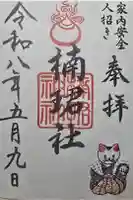 家内安全
人招き
奉拝
楠珺社
令和八年五月九日